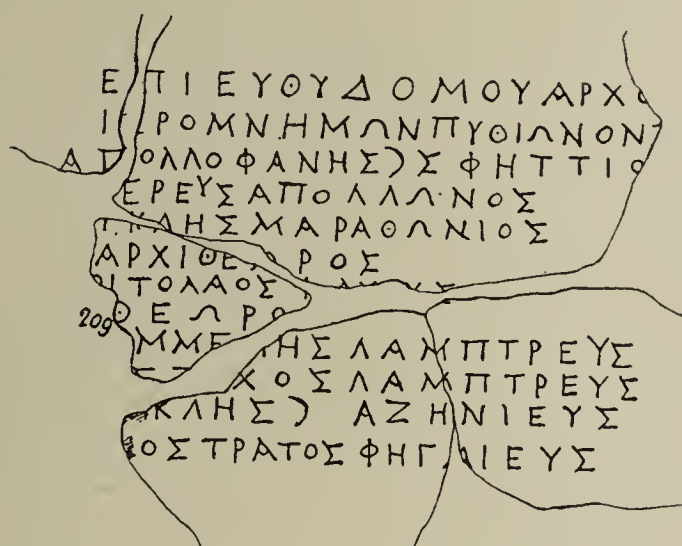 ΕΠΙΕΥΘΥΔΟΜΟΥΑΡΧΟ
ΙΕΡΟΜΝΗΜΩΝΠΥΘΙΩΝΟΝ
ΑΠΟΛΛΟΦΑΝΗΣ)ΣΦΗΤΤΙΟ
ΕΡΕΥΣΑΠΟΛΛΩΝΟΣ
ΚΛΗΣΜΑΡΑΘΩΝΙΟΣ
ΑΡΧΙΘΕΩΡΟΣ
ΙΤΟΛΑΟΣ
209 ΘΕΩΡΟ
ΜΜΕΝΗΣ ΛΑΜΠΤΡΕΥΣ
ΧΟΣ ΛΑΜΠΤΡΕΥΣ
ΚΛΗΣ) ΑΖΗΝΙΕΥΣ
ΟΣΤΡΑΤΟΣΦΗΓΑΙΕΥΣ